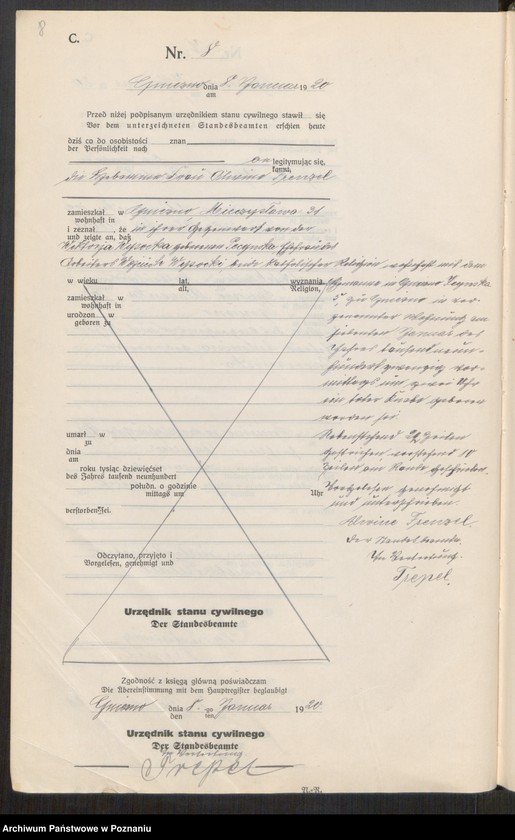 8
C.
Nr. 8
Gniezno dnia 8. Januar 1920
am
Przed niżej podpisanym urzędnikiem stanu cywilnego stawił się
Vor dem unterzeichneten Standesbeamten erschien heute
dziś co do osobistości znan
der Persönlichkeit nach
legitymując się,
kannt,
die Hebamme Frau Alwine Frenzel
zamieszkał w Gniezno, Mieczysława 31
wohnhaft in
i zeznał, że in ihrer Gegenwart von der
und zeigte an, daß
Wysocka geborenen Ehefrau des
Arbeiters Wysocki beide katholischer Religion, wohnhaft mit dem
w wieku lat, wyznania,
alt, Religion,
Ehemanne in Gniezno
zamieszkał w
wohnhaft in
5 zu Gniezno in vor-
urodzon w
geboren zu
genannter Wohnung am
siebenten Januar des
Jahres tausend neun-
hundert zwanzig vor-
mittags um zwei Uhr
ein toter Knabe geboren
worden sei.
umarł w
zu
Nebenstehend 22 Zeilen
dnia
am
gestrichen, vorstehend 10
roku tysiąc dziewięćset
des Jahres tausend neunhundert
Zeilen am Rande geschrieben.
połudn. o godzinie
mittags um
Uhr
Vorgelesen, genehmigt
und unterschrieben.
verstorben sei.
Alwine Frenzel.
Der Standesbeamte.
Odczytano, przyjęto i
Vorgelesen, genehmigt und
In Vertretung.
Trepel.
Urzędnik stanu cywilnego
Der Standesbeamte
Zgodność z księgą główną poświadczam
Die Übereinstimmung mit dem Hauptregister beglaubigt
Gniezno dnia 8. go Januar 1920
den ten
Urzędnik stanu cywilnego
Der Standesbeamte
In Vertretung.
Trepel
N.-R.
Archiwum Państwowe w Poznaniu